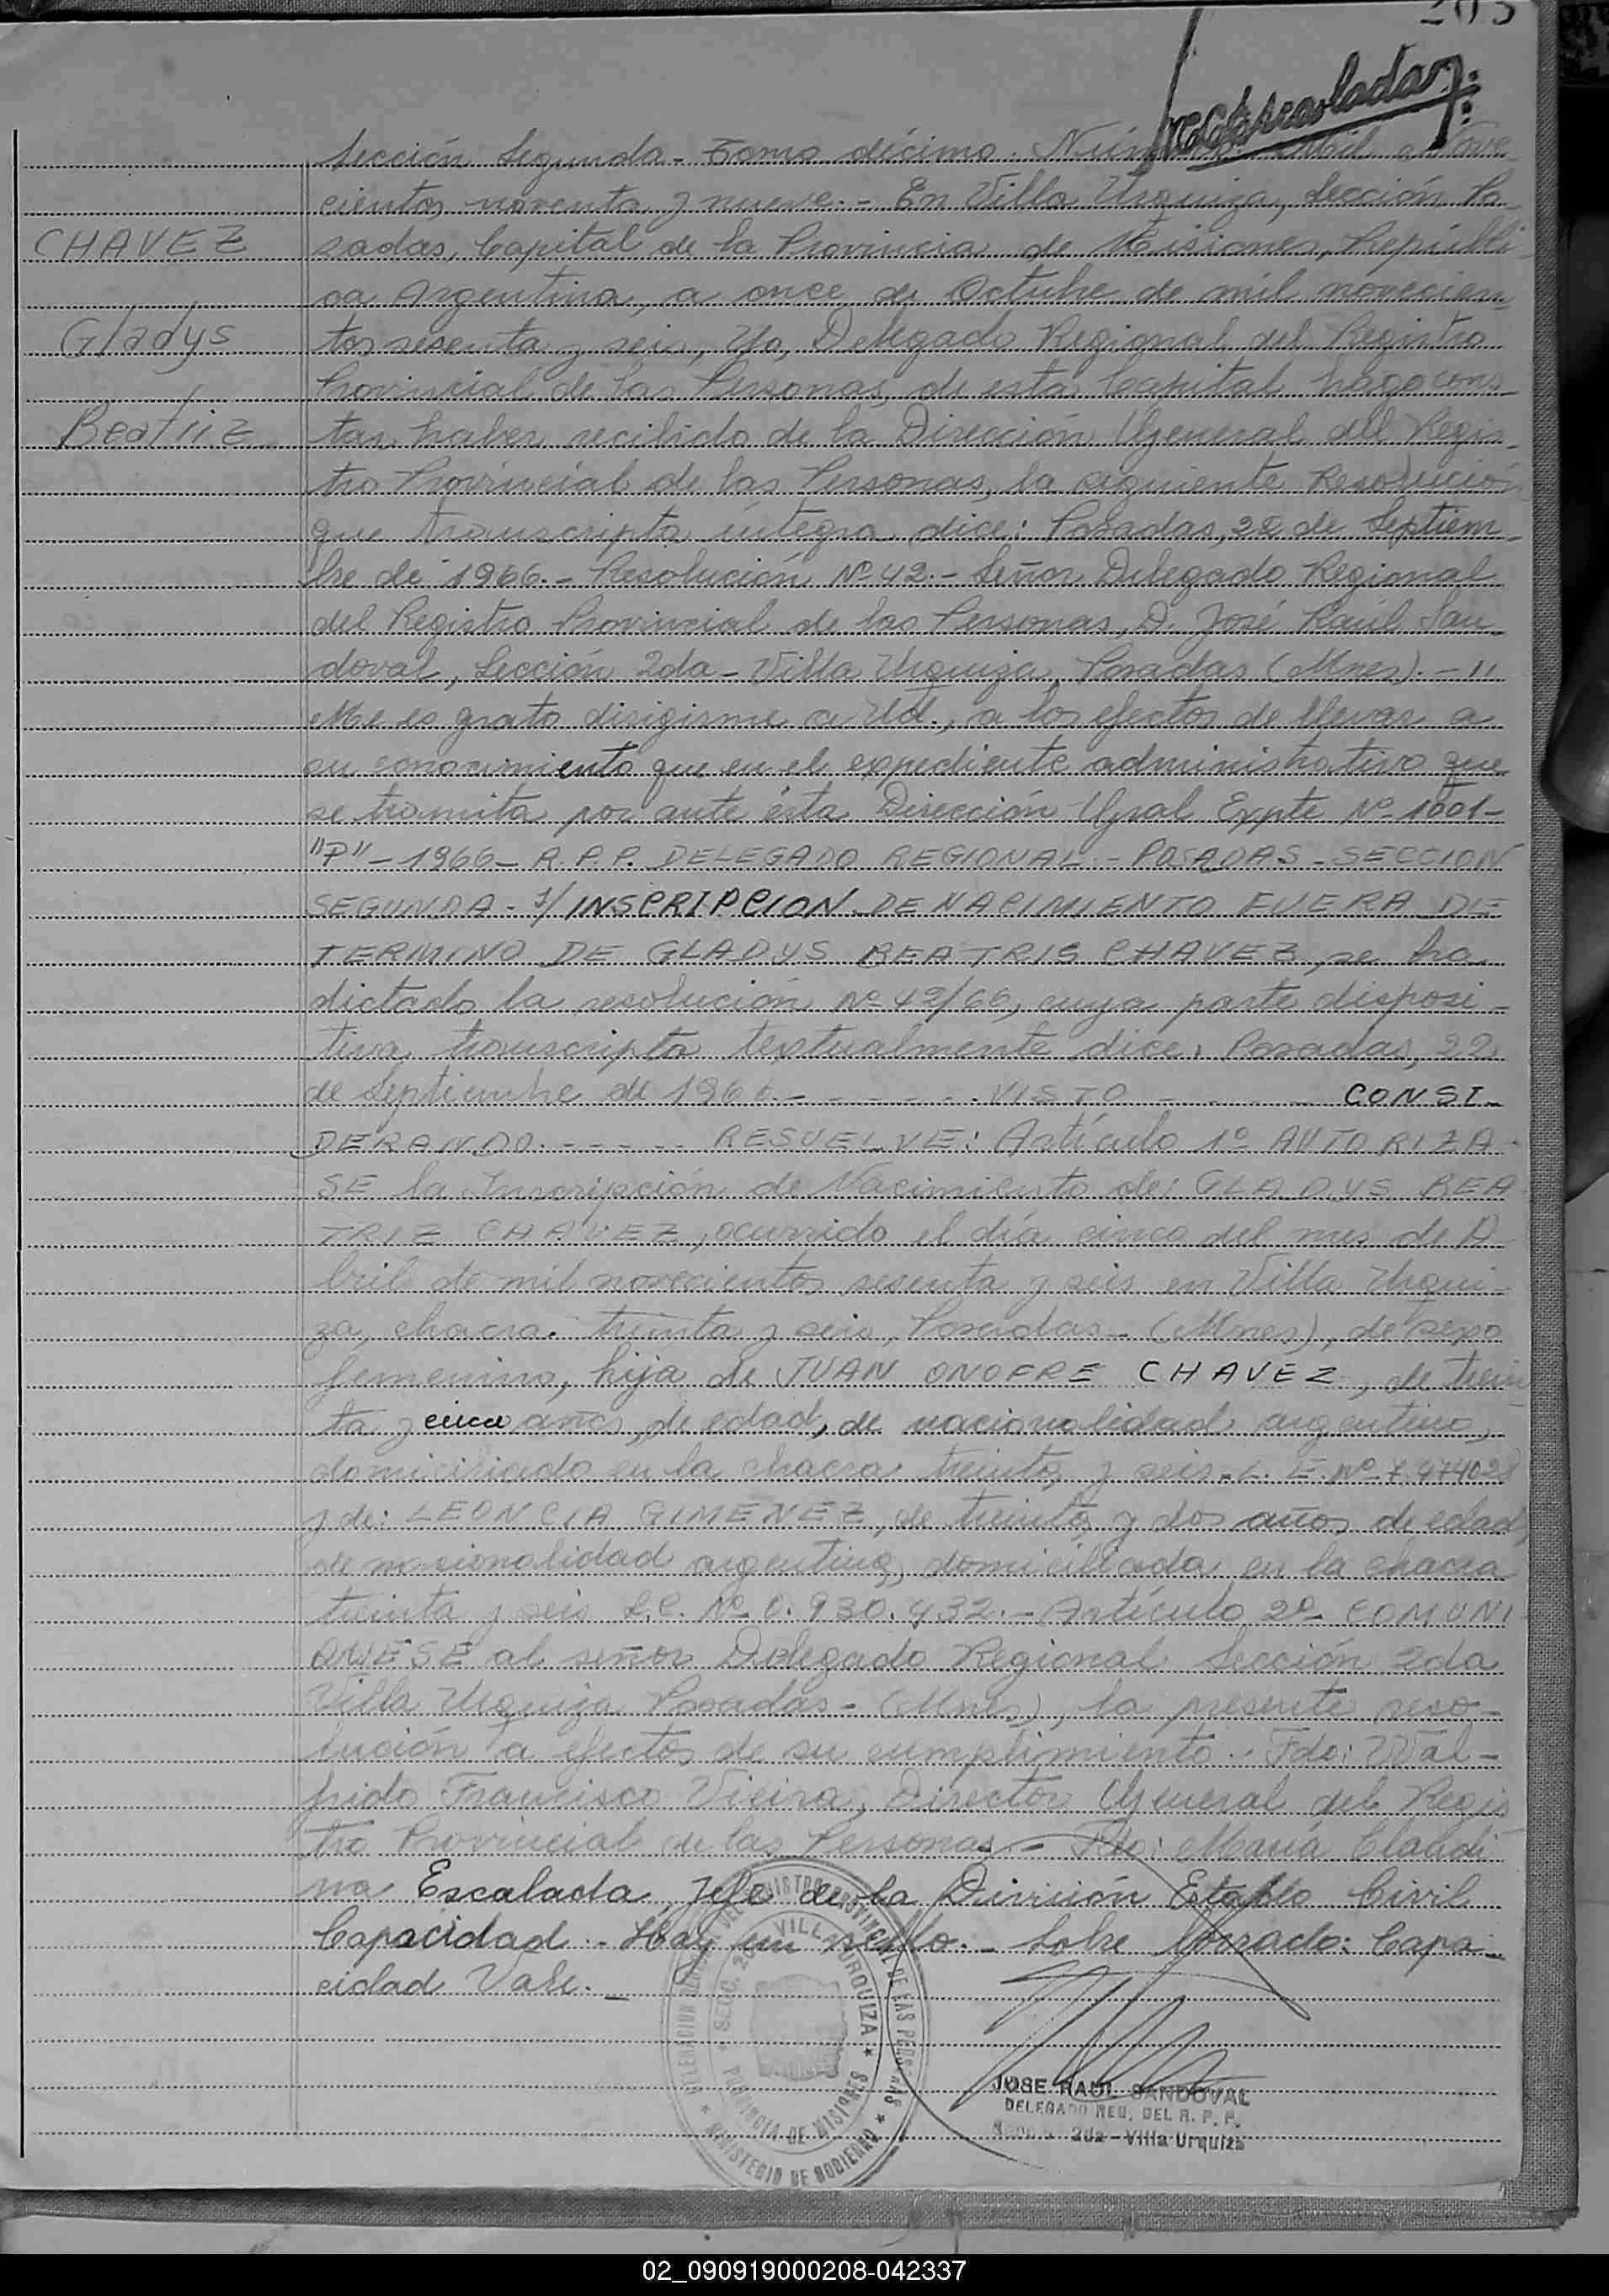 203
Sección Segunda - Tomo décimo. Número Mil nove
cientos noventa y nueve.- En Villa Urquiza, Sección Po
sadas, Capital de la Provincia de Misiones, Repúbli
CHAVEZ
ca Argentina, a once de Octubre de mil novecien
tos sesenta y seis, Yo, Delegado Regional del Registro
Gladys
Provincial de las Personas, de esta Capital hago cons
tar, haber recibido de la Dirección General del Regis
Beatriz
tro Provincial de las Personas, la siguiente Resolución
que transcripta íntegra dice: Posadas, 22 de Septiem
bre de 1966.- Resolución Nº 42.- Señor Delegado Regional
del Registro Provincial de las Personas, D. José Raúl San
doval, Sección 2da - Villa Urquiza, Posadas (Mnes).- "
Me es grato dirigirme a Ud., a los efectos de llevar a
su conocimiento que en el expediente administrativo que
se tramita por ante ésta Dirección Gral Expte Nº 1001-
"P" - 1966 - R.P.P. DELEGADO REGIONAL - POSADAS - SECCION
SEGUNDA - s/ INSCRIPCION DE NACIMIENTO FUERA DE
TERMINO DE GLADYS BEATRIS CHAVEZ, se ha
dictado la resolución Nº 42/66, cuya parte disposi-
tiva, transcripta textualmente dice, Posadas, 22
de Septiembre de 1966.- - - - - - VISTO - - - CONSI-
DERANDO. - - - - - RESUELVE: Artículo 1º AUTORIZA-
SE la Inscripción de Nacimiento de: GLADYS BEA
TRIZ CHAVEZ, ocurrido el día cinco del mes de A
bril de mil novecientos sesenta y seis en Villa Urqui-
za, chacra treinta y seis, Posadas - (Mnes), de sexo
femenino, hija de JUAN ONOFRE CHAVEZ, de trein
ta y cinco años, de edad, de nacionalidad argentino,
domiciliado en la chacra treinta y seis - L. E. Nº 7.474028
y de: LEONCIA GIMENEZ, de treinta y dos años de edad,
de nacionalidad argentina, domiciliada en la chacra
treinta y seis L.C. Nº 0.930.432.- Artículo 2º COMUNI
QUESE al señor Delegado Regional Sección 2da
Villa Urquiza Posadas - (Mnes), la presente reso-
lución a efectos de su cumplimiento.- Fdo: Wal-
frido Francisco Vieira, Director General del Regis
tro Provincial de las Personas.- Fdo: María Claudi
na Escalada, Jefe de la División Estado Civil
Capacidad.- Hay un sello.- Sobre borrado: Capa-
cidad Vale.-
DEL REGISTRO PROVINCIAL DE LAS PERSONAS
MINISTERIO DE GOBIERNO
SECC. 2da VILLA URQUIZA
PROVINCIA DE MISIONES
JOSE RAUL SANDOVAL
DELEGADO REG. DEL R. P. P.
2da - Villa Urquiza
02_090919000208-042337